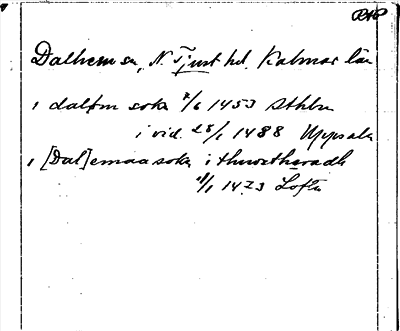 Dalhem sn, N. Tjust hd. Kalmar län
i dalem sokn 7/6 1453 Sthlm
i vid. 28/1 1488 Uppsala
i [Dal]emaa sokn i thwsthæradh
1423 Lofta